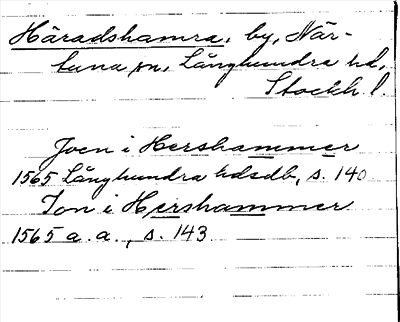 Häradshamra, by, När-
tuna sn, Långhundra hd,
Stockh. l.
Joen i Hershammer
1565 Långhundra hdsdb, s. 140
Ion i Hershammer
1565 a. a., s. 143